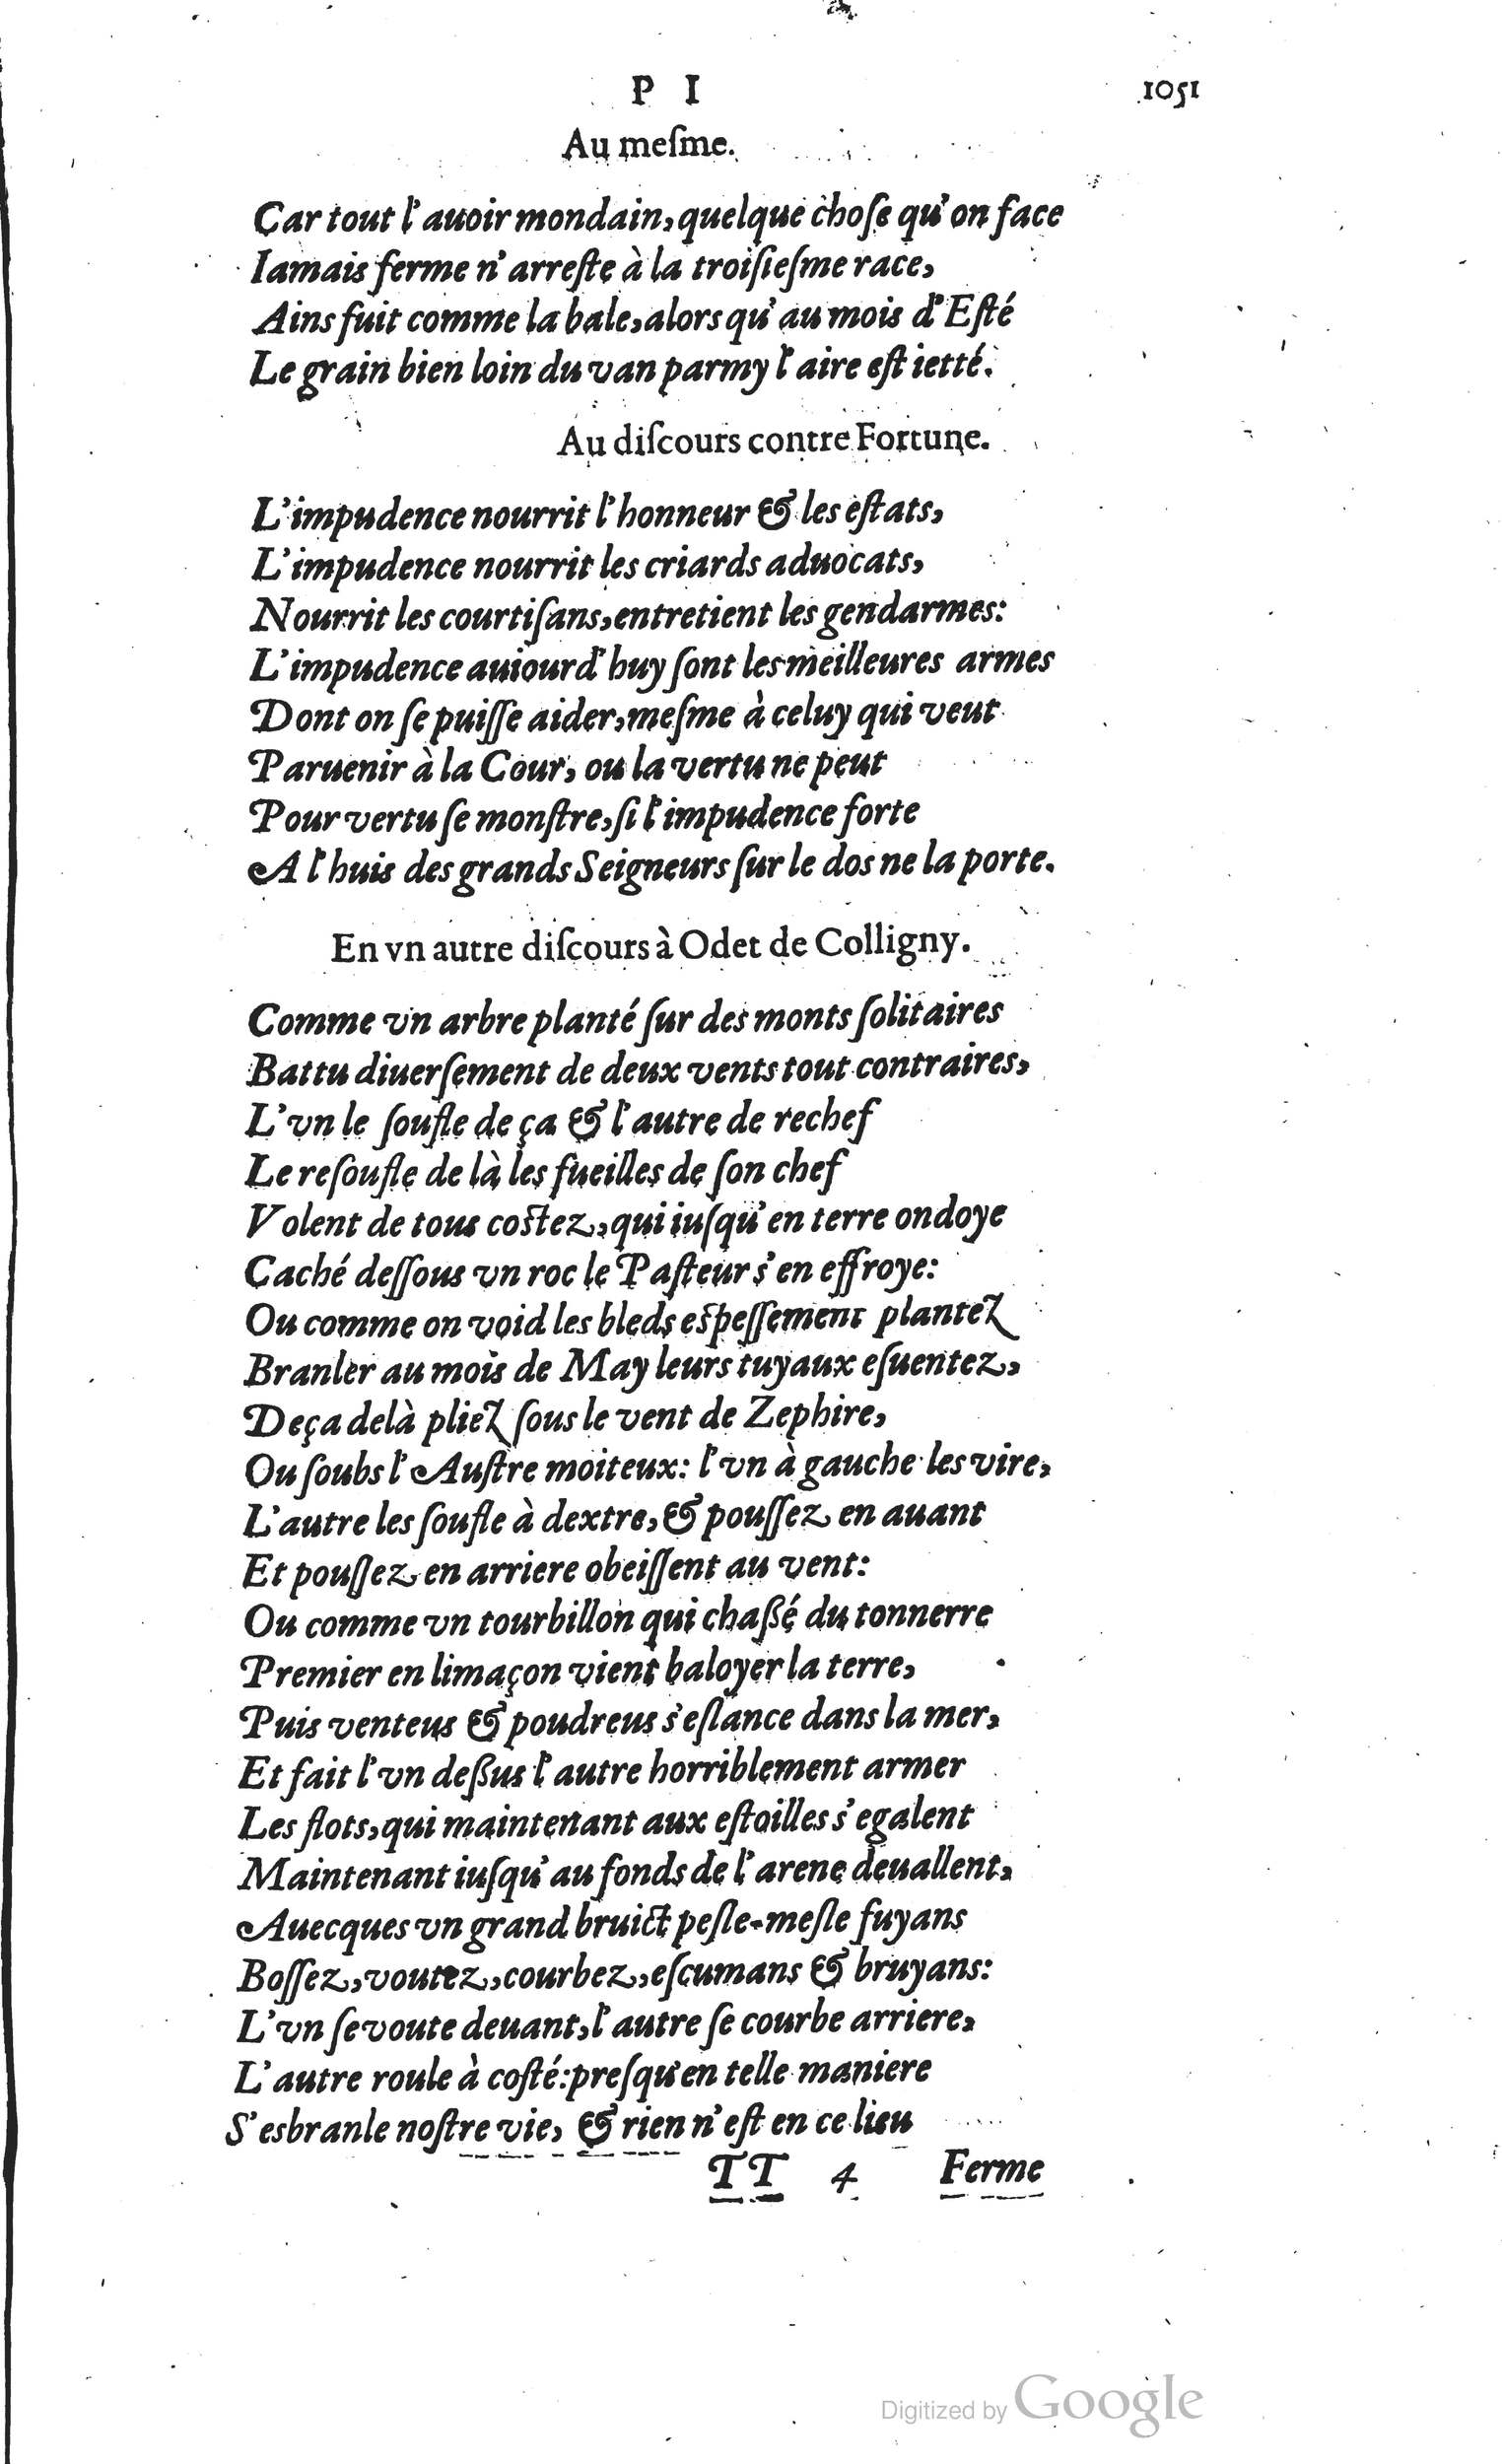 P I 1051
Au meſme.
Car tout l'auoir mondain, quelque choſe qu'on face
Iamais ferme n'arreſte à la troiſieſme race,
Ains fuit comme la bale, alors qu'au mois d'Eſté
Le grain bien loin du van parmy l'aire eſt ietté.
Au diſcours contre Fortune.
L'impudence nourrit l'honneur & les eſtats,
L'impudence nourrit les criards aduocats,
Nourrit les courtiſans, entretient les gendarmes:
L'impudence auiourd'huy ſont les meilleures armes
Dont on ſe puiſſe aider, meſme à celuy qui veut
Paruenir à la Cour, ou la vertu ne peut
Pour vertu ſe monſtre, ſi l'impudence forte
A l'huis des grands Seigneurs ſur le dos ne la porte.
En vn autre diſcours à Odet de Colligny.
Comme vn arbre planté ſur des monts ſolitaires
Battu diuerſement de deux vents tout contraires,
L'vn le ſoufle de ça & l'autre de rechef
Le reſoufle de là les fueilles de ſon chef
Volent de tous coſtez, qui iuſqu'en terre ondoye
Caché deſſous vn roc le Paſteur s'en effroye:
Ou comme on void les bleds eſpeſſement plantez
Branler au mois de May leurs tuyaux eſuentez,
Deça delà pliez ſous le vent de Zephire,
Ou ſoubs l'Auſtre moiteux: l'vn à gauche les vire,
L'autre les ſoufle à dextre, & pouſſez en auant
Et pouſſez en arriere obeiſſent au vent:
Ou comme vn tourbillon qui chaßé du tonnerre
Premier en limaçon vient baloyer la terre,
Puis venteus & poudreus s'eſlance dans la mer,
Et fait l'vn deßus l'autre horriblement armer
Les flots, qui maintenant aux eſtoilles s'egalent
Maintenant iuſqu'au fonds de l'arene deuallent,
Auecques vn grand bruict peſle-meſle fuyans
Boſſez, voutez, courbez, eſcumans & bruyans:
L'vn ſe voute deuant, l'autre ſe courbe arriere,
L'autre roule à coſté: preſqu'en telle maniere
S'esbranle noſtre vie, & rien n'eſt en ce lieu
TT 4 Ferme
Digitized by Google